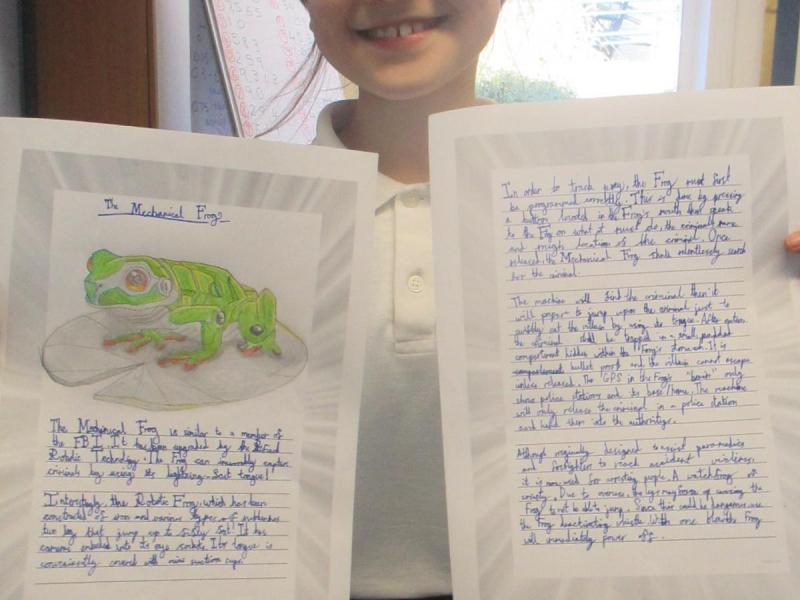 The Mechanical Frog
The Mechanical Frog is similar to a member of
the FBI. It has been upgraded by the
Robotic Technology. The Frog can capture
criminals by using its lightning-fast tongue!
Interestingly, the Robotic Frog, which has been
constructed of iron and various types of
two leg that jump up to sixty feet. It has
cameras into its eye sockets. Its tongue is
conveniently covered with mini suction cups.
In order to track prey, the Frog must first
be programmed correctly. This is done by pressing
a button located in the Frog's mouth that speak
to the Frog on what it must do, the criminals name
and rough location of the criminal. Once
released, the Mechanical Frog shall relentlessly search
for the criminal.
The machine will find the criminal then it
will prepare to jump upon the criminal just to
swiftly eat the villain by using its tongue. After eaten,
the criminal shall be trapped in a small, padded
compartment hidden within the Frog's stomach. It is
bullet proof and the villain cannot escape
unless released. The GPS in the Frog's "brain" only
show police stations and its base/home. The machine
will only release the criminal in a police station
and hand them into the authorities.
Although originally designed to assist paramedics
and firefighter to reach accident
it is now used for arresting people. A watchfrog of
society. Due to overuse, the legs may freeze up causing the
Frog to not be able to jump. Since this could be dangerous, use
the Frog deactivating whistle. With one blow the Frog
will immediately power off.